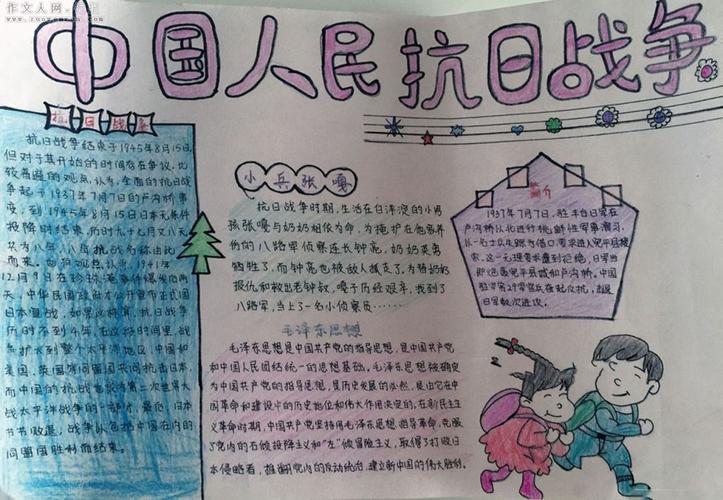 作文人网
中国人民抗日战争
抗日战争
抗日战争结束于1945年8月15日,
但对于其开始的时间存在争议,比
较普遍的观点认为,全面的抗日战
争起于1937年7月7日的卢沟桥事
变,到1945年8月15日日本无条件
投降时结束,历时九个月又八天
12月9日在珍珠港事件爆发后两
天,中华民国政府才公开宣布正式国
日本宣战,如果这样算,抗日战争
历时不到4年,在这段时间里,战
兵扩大到整个太平洋地区,中国和
美国,英国等同盟国共同抗击日本,
而中国的抗战也成为第二次世界大
战太平洋战争的一部分,最后,日本
节节败退,战争以包括中国在内的
同盟国胜利而结束。
小兵张嘎
抗日战争时期,生活在白洋淀的小男
孩张嘎与奶奶相依为命,为掩护在他家养
伤的八路军侦察连长钟亮,奶奶英勇
牺牲了,而钟亮也被敌人抓走了,为替奶奶
报仇和救出老钟叔,嘎子历经艰辛,找到了
八路军,当上了一名小侦察员……
毛泽东思想
毛泽东思想是中国共产党的指导思想,是中国共产党
和中国人民团结统一的思想基础,毛泽东思想被确定
为中国共产党的指导思想,是历史发展的必然,是由它在中
国革命和建设中的历史地位和伟大作用决定的,在新民主主
义革命时期,中国共产党坚持用毛泽东思想指导革命,克服
了党内的右倾投降主义和“左”倾冒险主义,取得了打败日
本侵略者,推翻党内的反动统治,建立新中国的伟大胜利。
简介
1937年7月7日,驻丰台日军在
卢沟桥以北进行挑衅性军事演习,
以一名士兵失踪为借口,要求进入宛平县搜
索,这一无理要求遭到拒绝,日军当
即炮轰宛平县城和卢沟桥。中国
驻军第29军官兵在起反抗,击退
日军数次进攻。